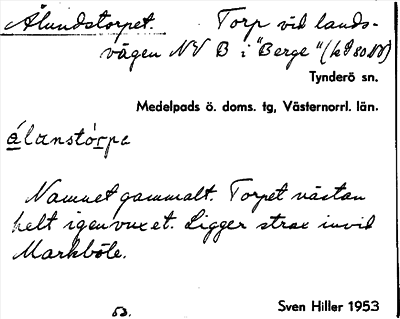 Ålundstorpet. Torp vid lands-
vägen NV B i "Berge"
Tynderö sn.
Medelpads ö. doms. tg, Västernorrl. län.
álanstórpe
Namnet gammalt. Torpet nästan
helt igenvuxet. Ligger strax invid
Markböle.
Sven Hiller 1953